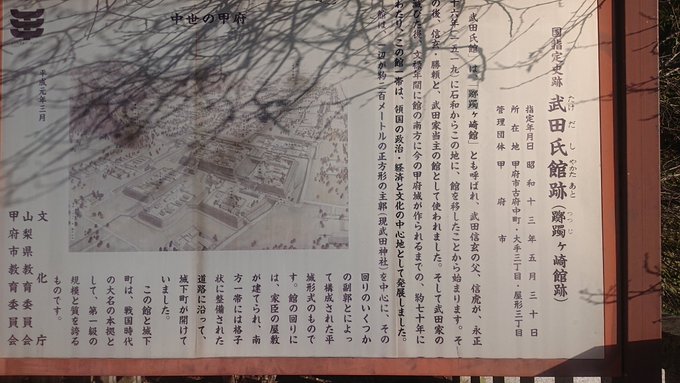 国指定史跡 武田氏館跡 躑躅ヶ崎館跡
たけ だ し やかた あと つつじ
指定年月日 昭和十三年五月三十日
所在地 甲府市古府中町・大手三丁目・屋形三丁目
管理団体 甲府市
武田氏館は、「躑躅ヶ崎館」とも呼ばれ、武田信玄の父、信虎が、永正
十六年(一五一九)に石和からこの地に、館を移したことから始まります。そ
の後、信玄・勝頼と、武田家当主の館として使われました。そして武田家の
滅亡後、文禄年間に館の南方に今の甲府城が作られるまでの、約七十年に
わたり、この館一帯は、領国の政治・経済と文化の中心地として発展しました。
館は、一辺が約二百メートルの正方形の主郭(現武田神社)を中心に、その
回りのいくつか
の副郭とによっ
て構成された平
城形式のもので
す。館の回りに
は、家臣の屋敷
が建てられ、南
方一帯には格子
状に整備された
道路に沿って
城下町が開けて
いました。
この館と城下
町は、戦国時代
の大名の本拠と
して、第一級の
規模と質を誇る
ものです。
文化庁
山梨県教育委員会
甲府市教育委員会
中世の甲府
平成元年三月